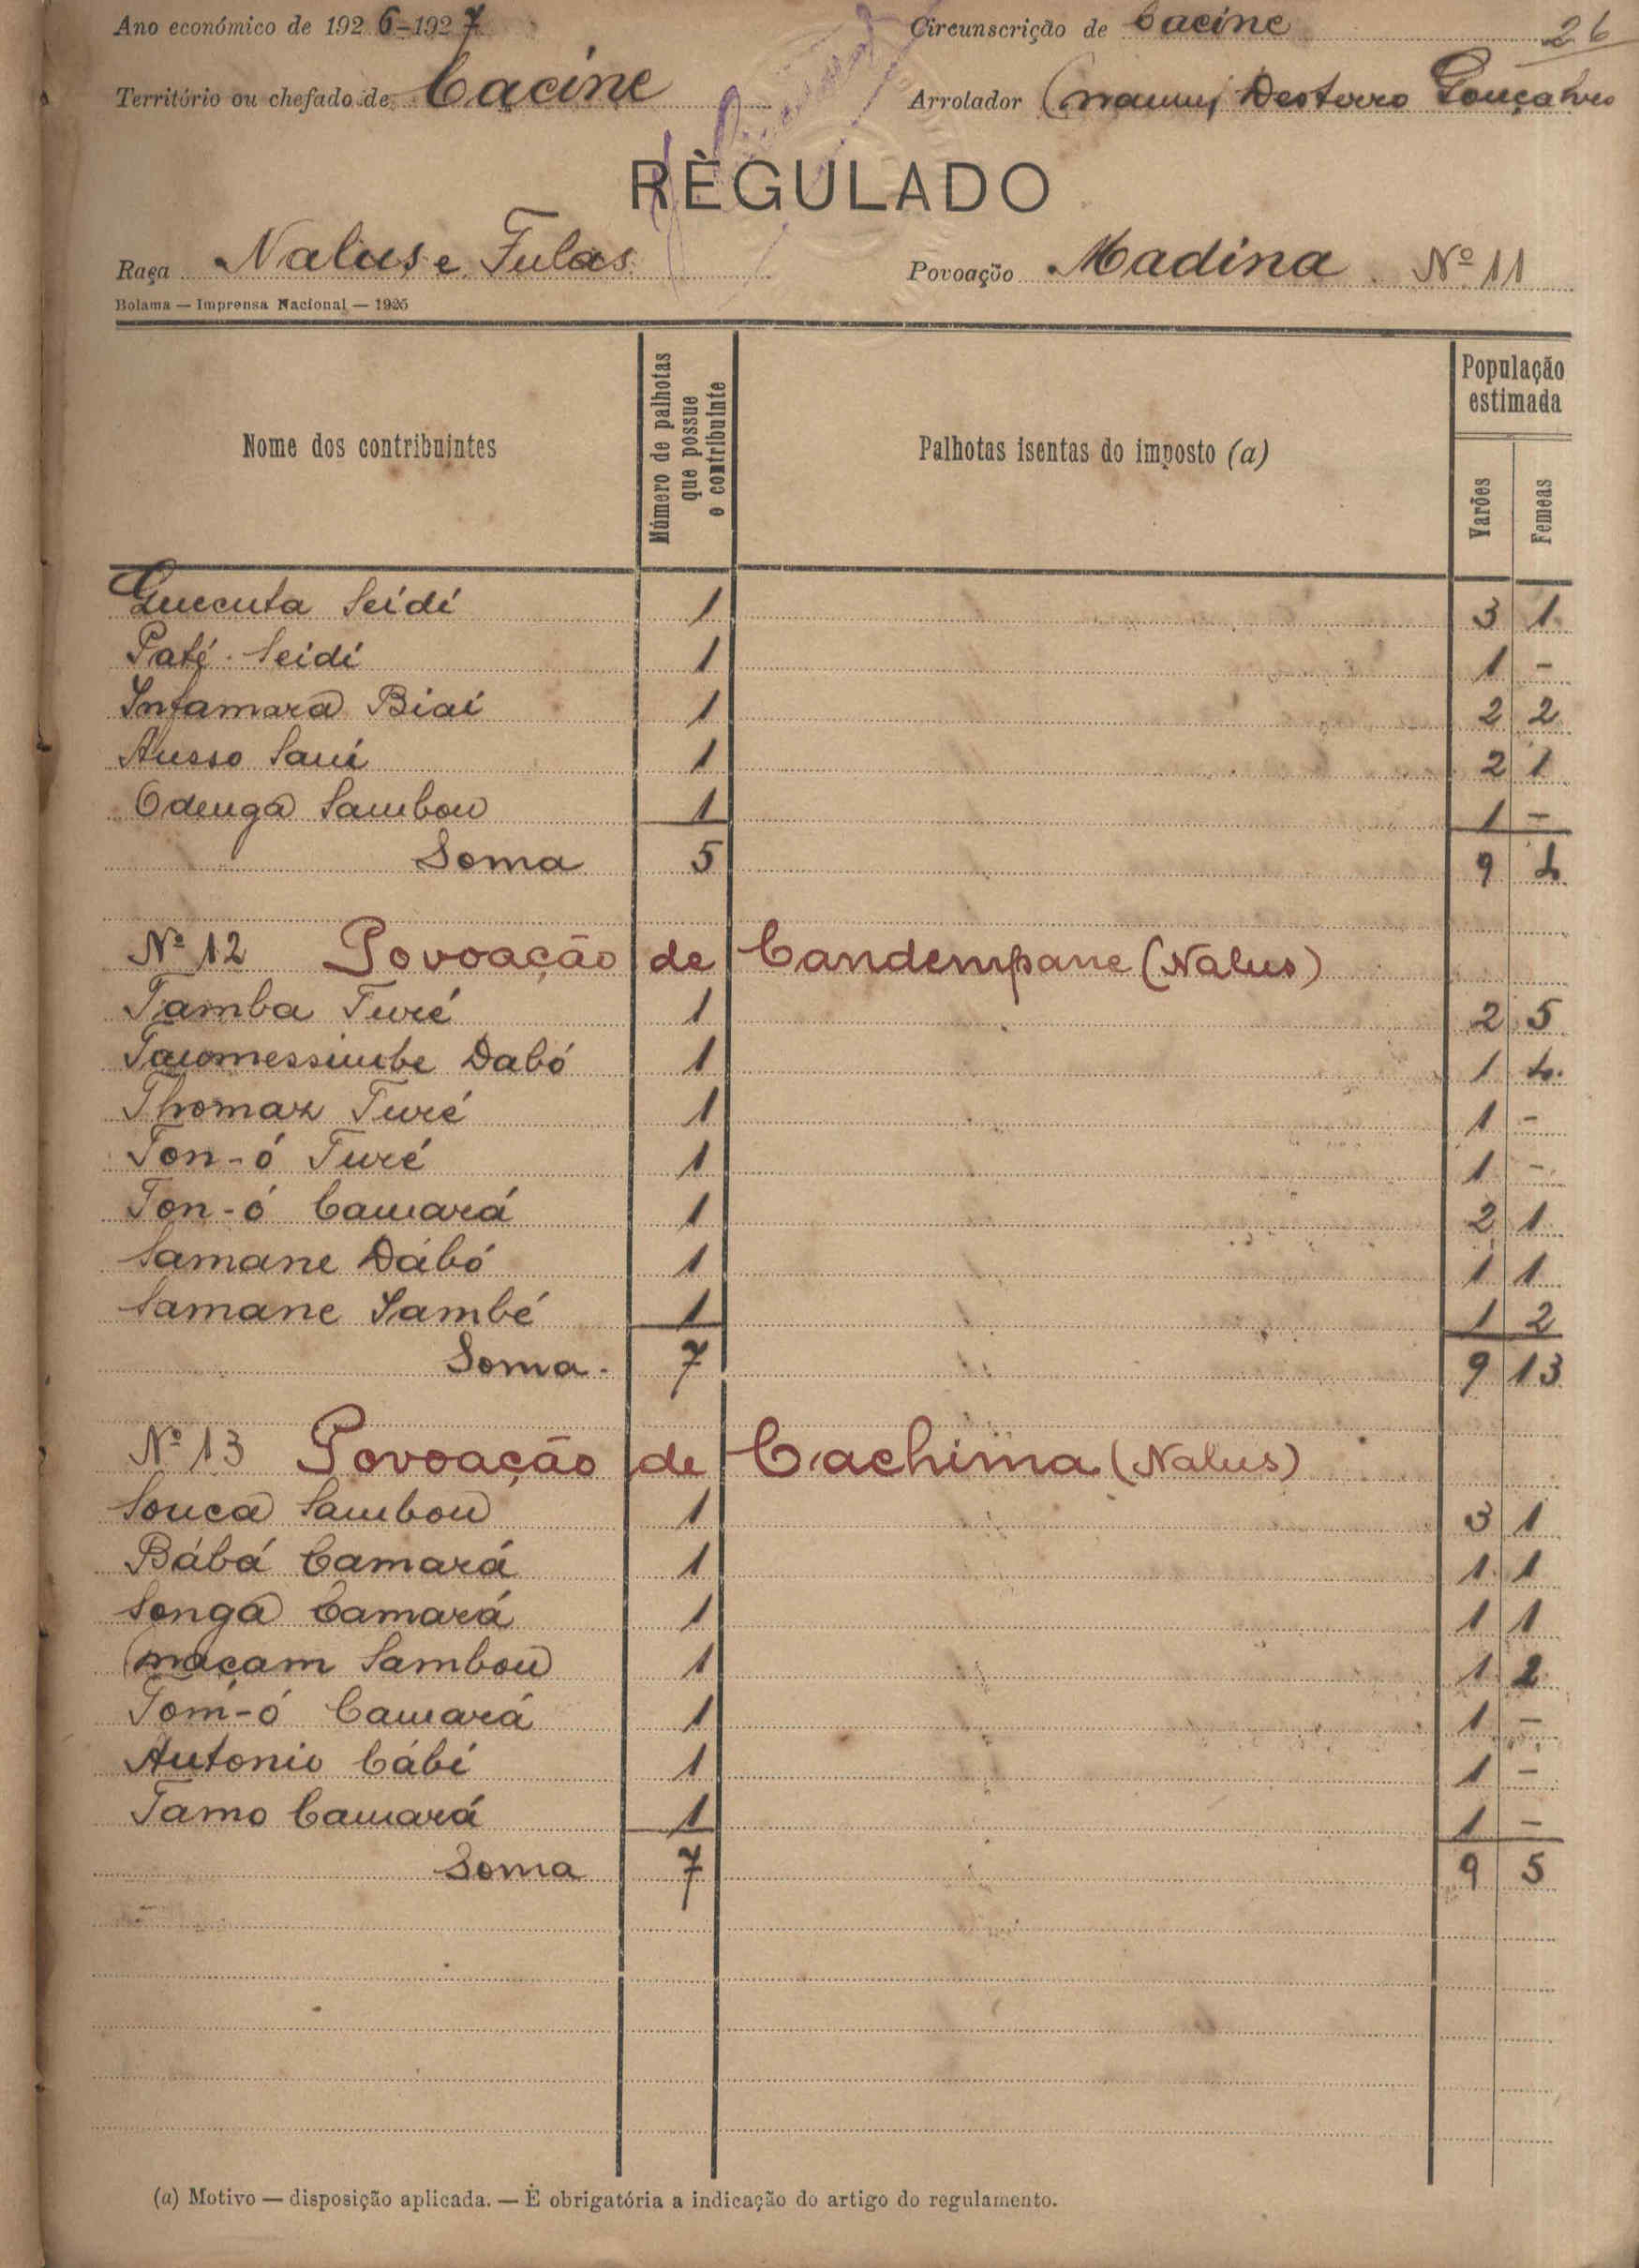 Ano económico de 1926-1927 Circunscrição de Cacine 26
Território ou chefado de Cacine Arrolador Desterro Gonçalves
RÈGULADO
Raça Nalus e Fulas Povoação Madina Nº 11
Bolama — Imprensa Nacional — 1925
Nome dos contribuintes
Número de palhotas
que possue
o contribuinte
Palhotas isentas do imposto (a)
População
estimada
Varões
Femeas
Queccuta Seidi 1 3 1
Paté Seidi 1 1 -
Infamara Biai 1 2 2
Ausso Sani 1 2 1
Odenga Sambou 1 1 -
Soma 5 9 4
Nº 12 Povoação de Candempane (Nalus)
Tamba Turé 1 2 5
Dabó 1 1 4
Thomaz Turé 1 1 -
Ton-ó Turé 1 1 -
Ton-ó Camará 1 2 1
Samane Dábó 1 1 1
Samane Sambé 1 1 2
Soma 7 9 13
Nº 13 Povoação de Cachima (Nalus)
Souca Sambou 1 3 1
Bábá Camará 1 1 1
Songa Camará 1 1 1
Maçam Sambou 1 1 2
Tom-ó Camará 1 1 -
Antonio Cábi 1 1 -
Tamo Camará 1 1 -
Soma 7 9 5
(a) Motivo — disposição aplicada. — È obrigatória a indicação do artigo do regulamento.